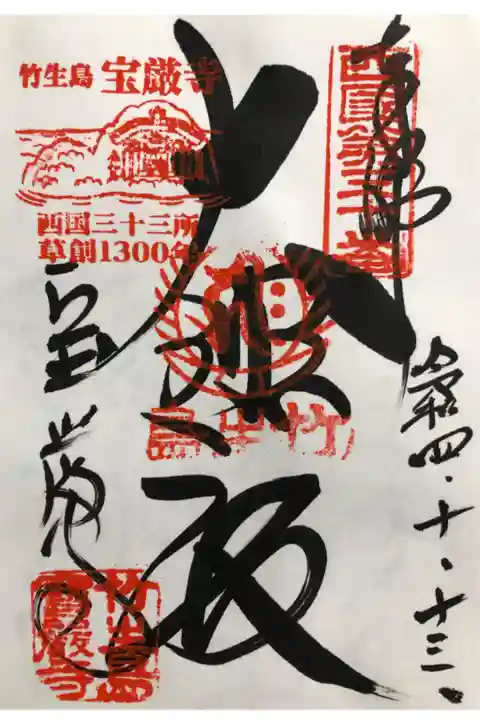 奉拝
西国第三十番
令和四・十・十三、
大悲殿
竹生島 宝厳寺
西国三十三所
草創1300年
竹生島
宝厳寺
竹生島
宝厳寺